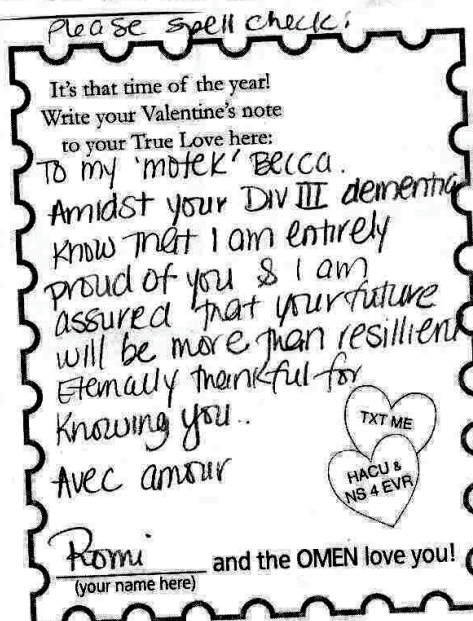 Please spell check!
It's that time of the year!
Write your Valentine's note
to your True Love here:
To my 'motek' Becca.
Amidst your DIV III dementia
Know that I am entirely
proud of you & I am
assured that your future
will be more than resillient
Eternally thankful for
Knowing you..
Avec amour
TXT ME
HACU &
NS 4 EVR
Romi and the OMEN love you!
(your name here)